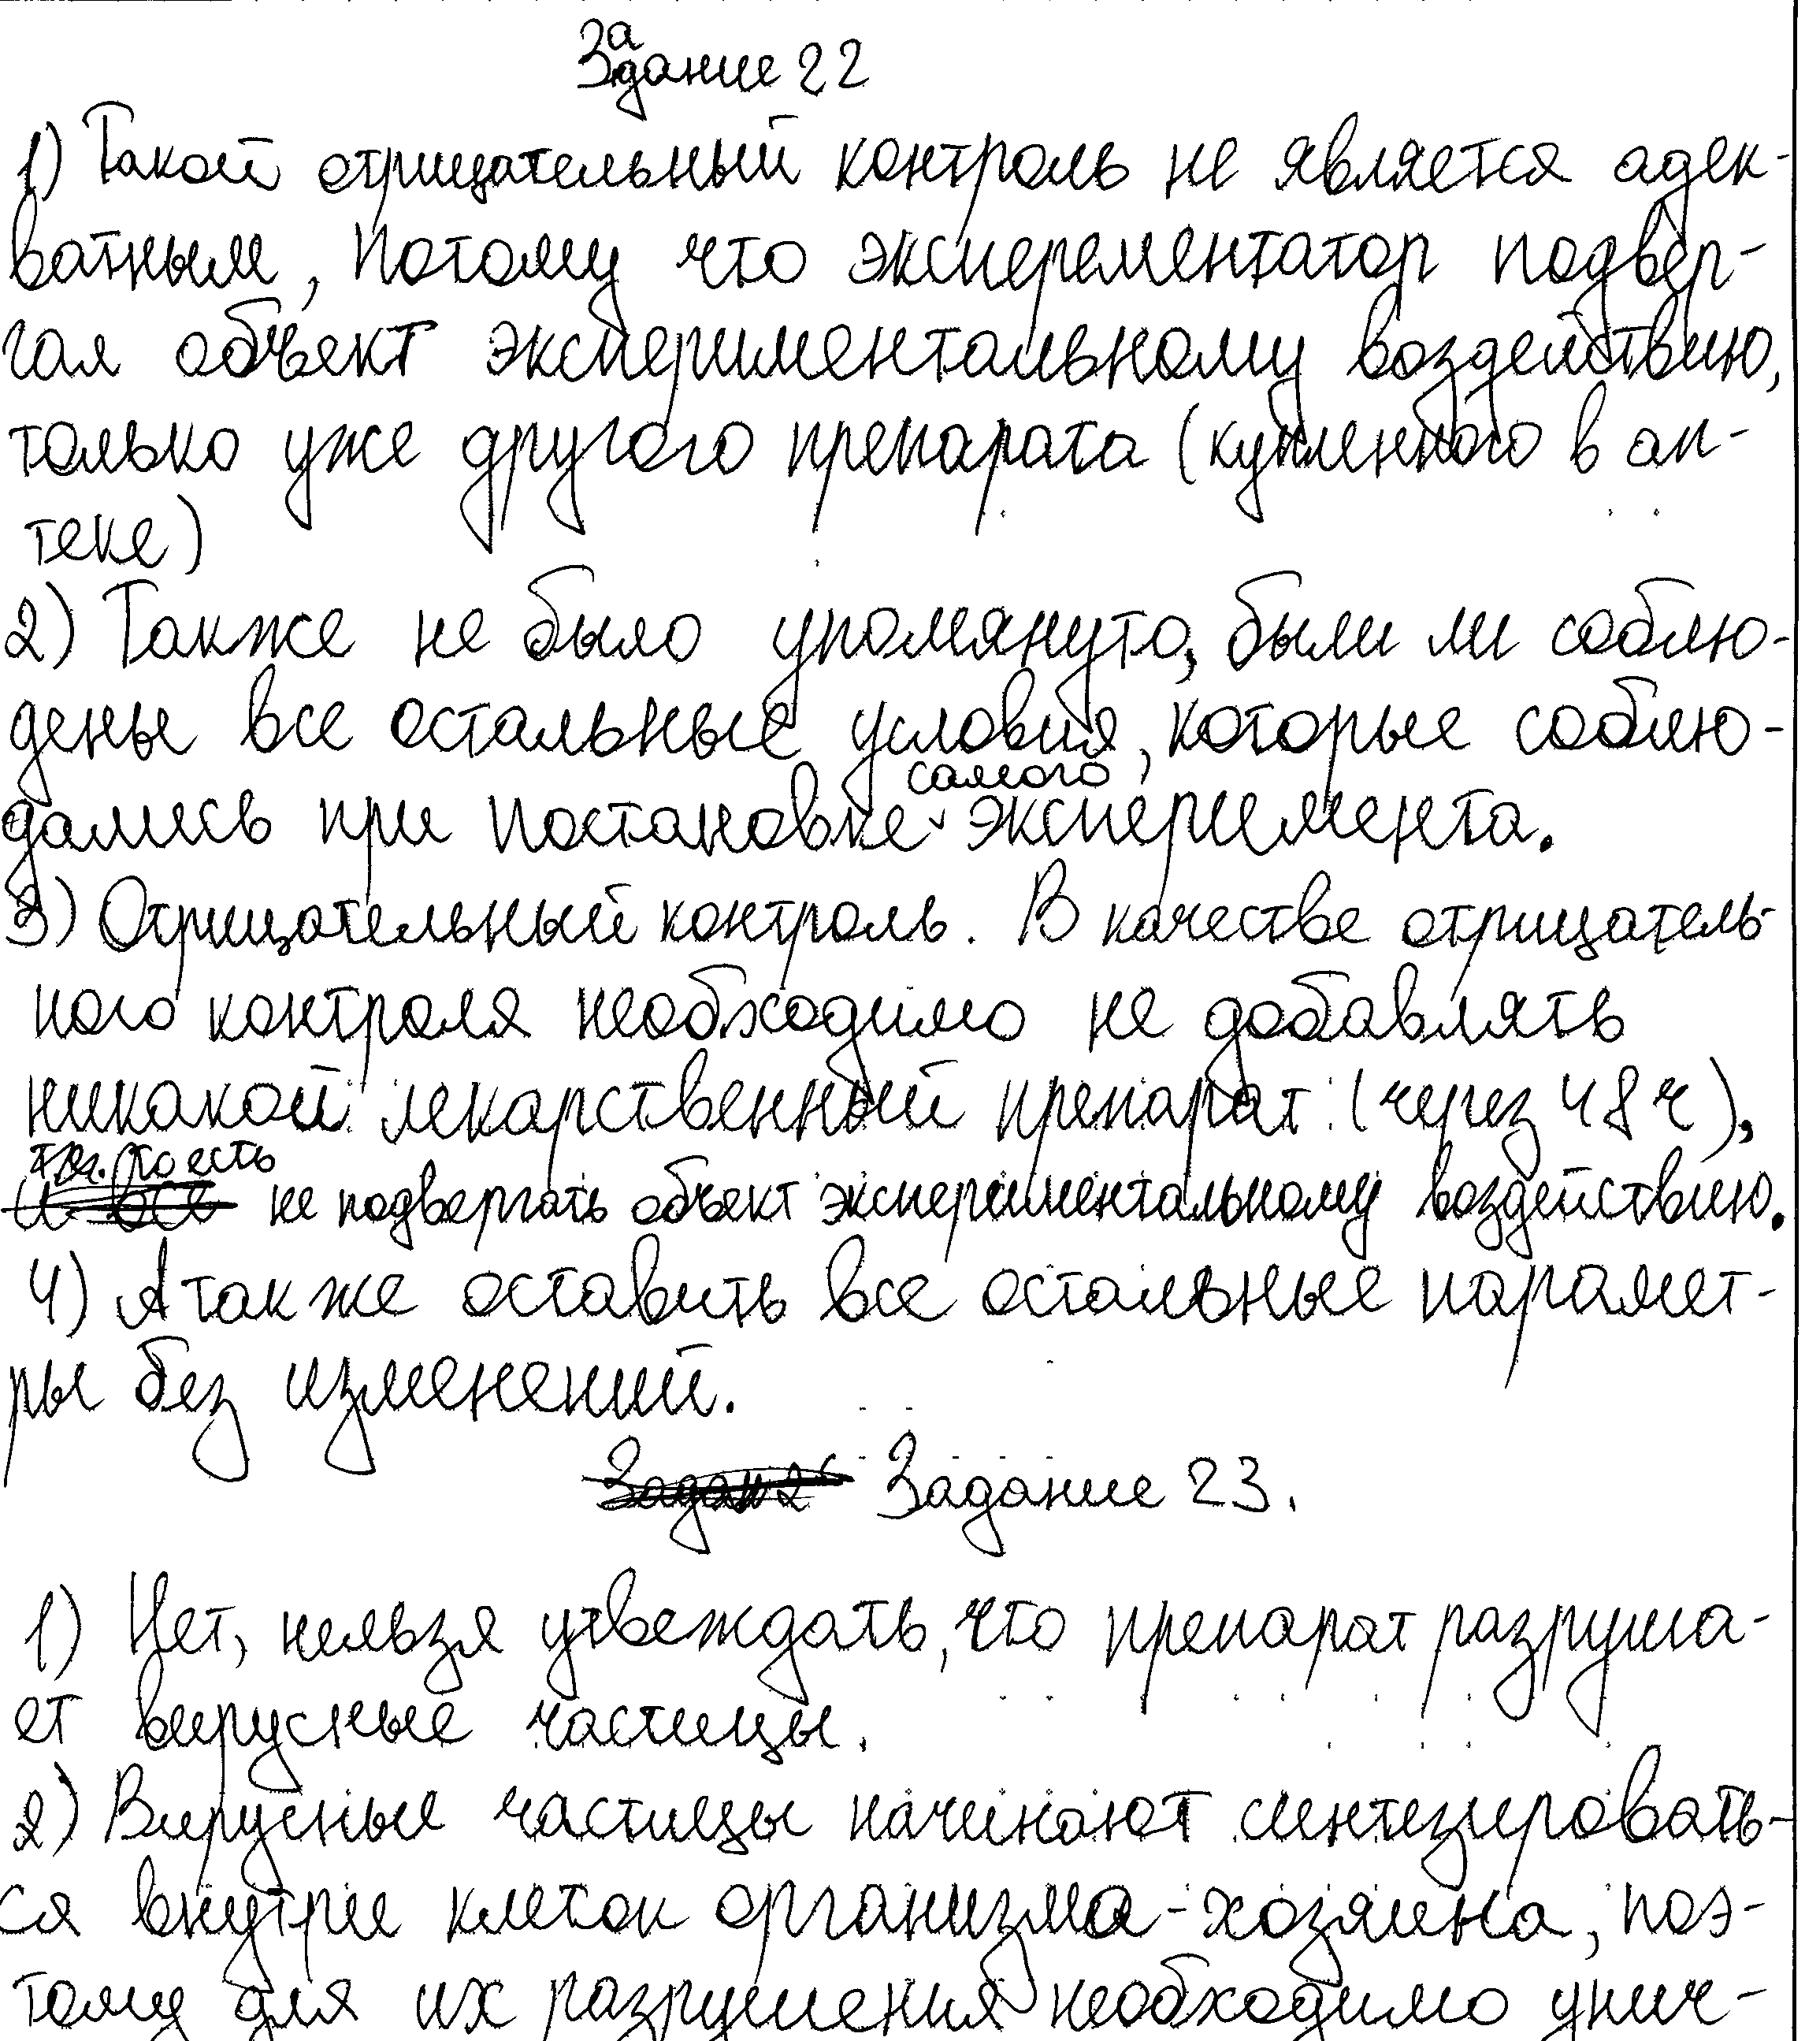 Задание 22
1) Такой отрицательный контроль не является адек-
ватным, потому что эксперементатор подвер-
гал объект экспериментальному воздействию,
только уже другого препарата (купленного в ап-
теке)
2) Также не было упомянуто, были ли соблю-
дены все остальные условия, которые соблю-
дались при постановке самого эксперимента.
3) Отрицательный контроль. В качестве отрицатель-
ного контроля необходимо не добавлять
никакой лекарственный препарат (через 48 ч),
то есть не подвергать объект экспериментальному воздействию.
4) А также оставить все остальные парамет-
ры без изменений.
Задание 23.
1) Нет, нельзя утвеждать, что препарат разруша-
ет вирусные частицы.
2) Вирусные частицы начинают синтезировать-
ся внутри клеток организма-хозяина, поэ-
тому для их разрушения необходимо унич-